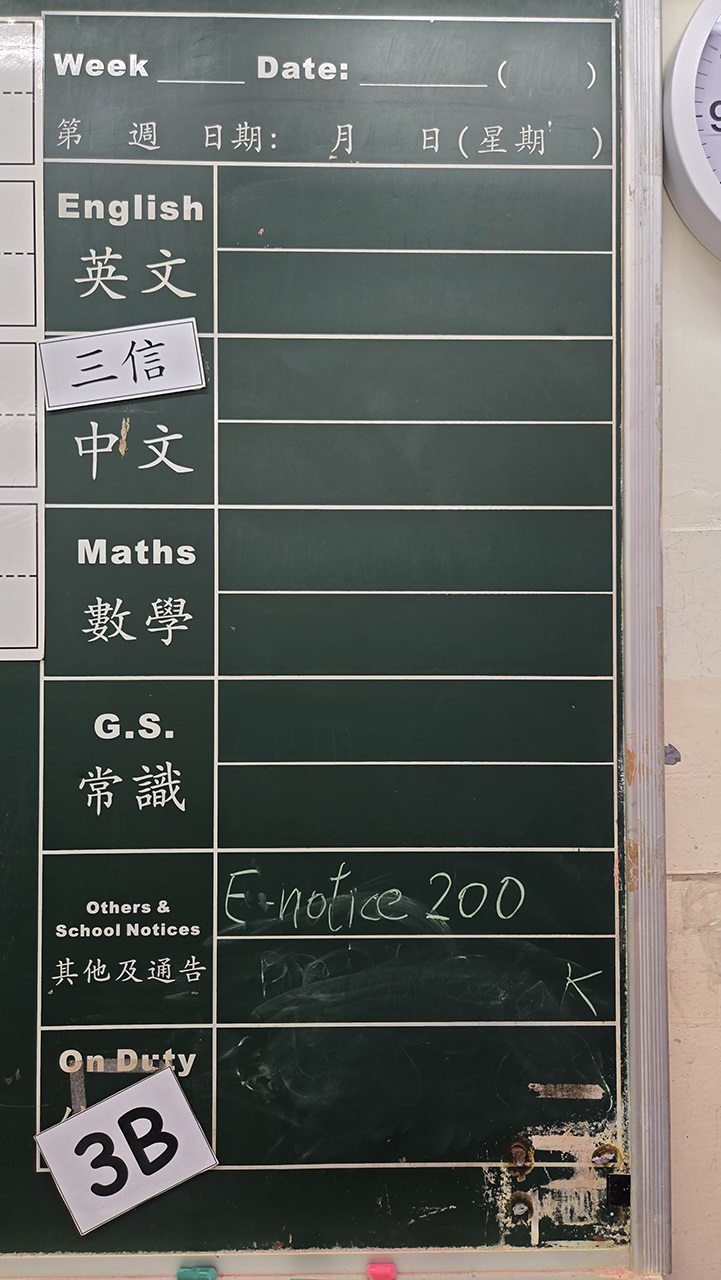 Week ____ Date: ________ ( )
第 週 日期: 月 日(星期 )
English
英文
三信
中文
Maths
數學
G.S.
常識
Others &
School Notices
其他及通告
E-notice 200
K
On Duty
3B
9